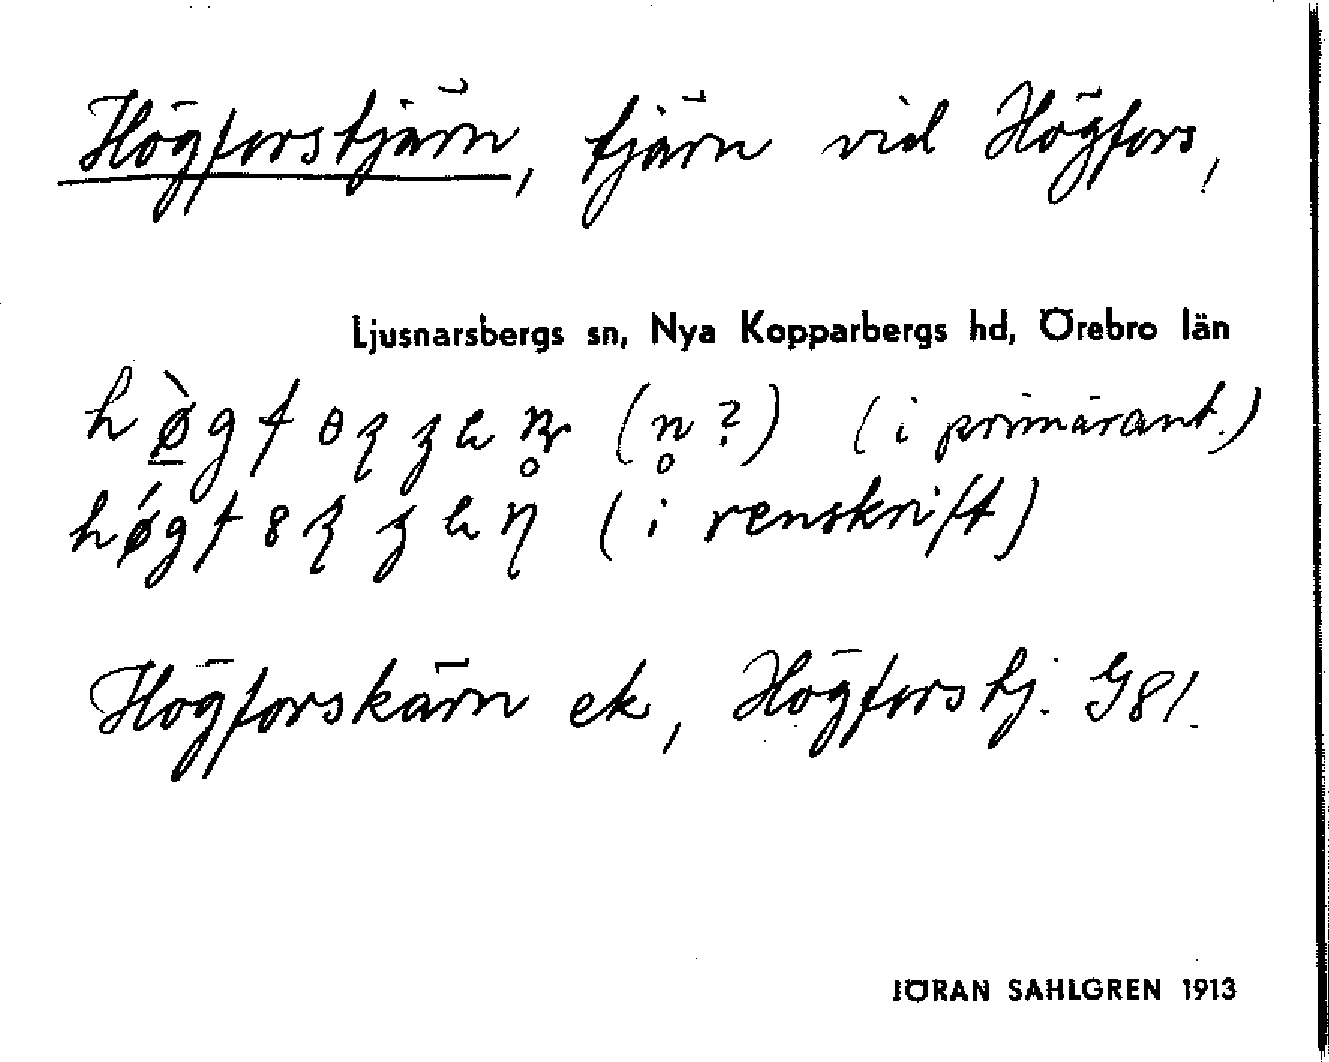 Högforstjärn, tjärn vid Högfors,
Ljusnarsbergs sn, Nya Kopparbergs hd, Örebro län
(n̥?) (i primäruppt.)
(i renskrift)
Högforskärn ek, Högforstj. G81.
JÖRAN SAHLGREN 1913